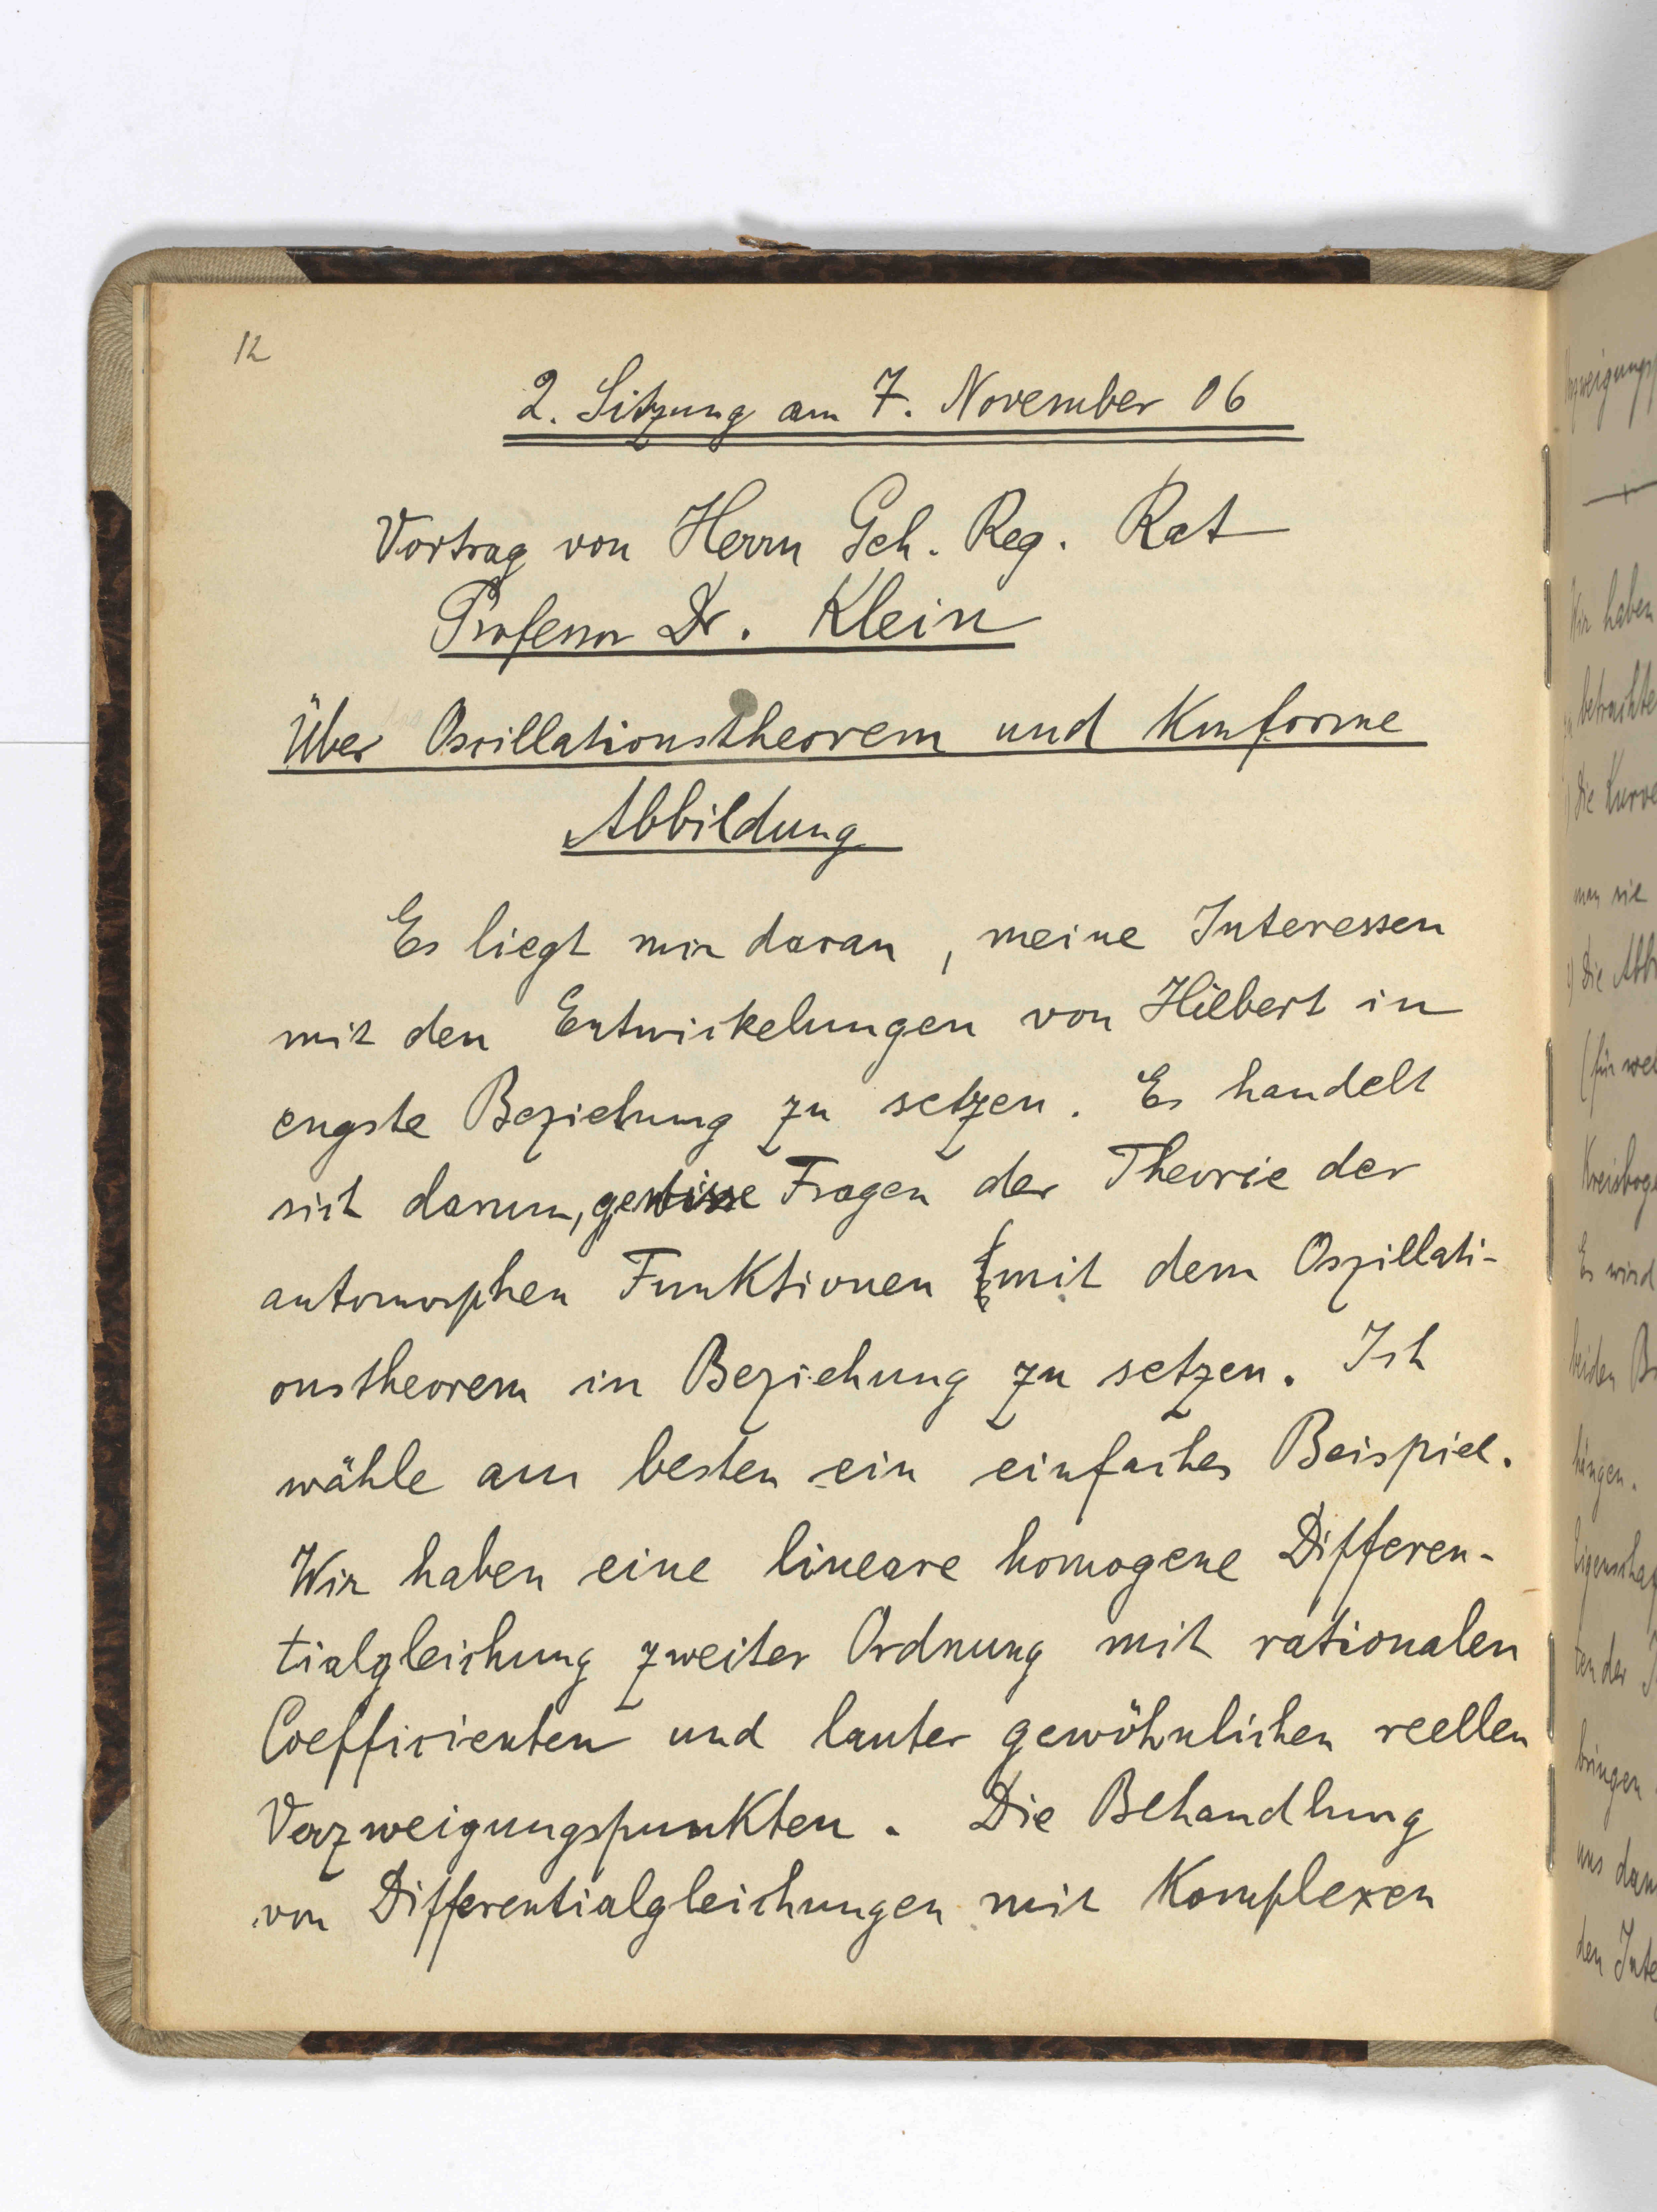 12
2. Sitzung am 7. November 06
Vortrag von Herrn Geh. Reg. Rat
Professor Dr. Klein
Über Oscillationstheorem und Konforme
Abbildung
Es liegt mir daran, meine Interessen
mit den Entwickelungen von Hilbert in
engste Beziehung zu setzen. Es handelt
sich darum, gewisse Fragen der Theorie der
automorphen Funktionen mit dem Oszillati-
onstheorem in Beziehung zu setzen. Ich
wähle am besten ein einfaches Beispiel.
Wir haben eine lineare homogene Differen-
tialgleichung zweiter Ordnung mit rationalen
Coefficienten und lauter gewöhnlichen reellen
Verzweigungspunkten. Die Behandlung
von Differentialgleichungen mit Komplexen
Wir haben
betrachte
Die Kurve
man sie
Die Abb
(für wel
Kreisboge
Es wird
beiden B
hängen.
Eigenschaf
ten der I
bringen
uns dam
den Inte